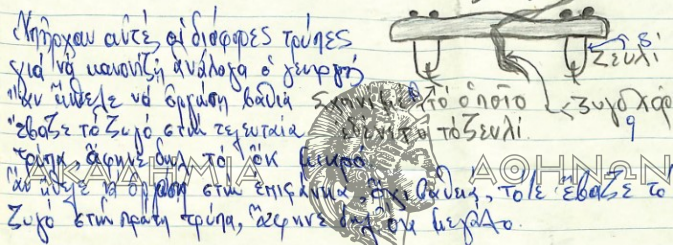 Ὑπῆρχαν αὐτές οἱ διάφορες τρύπες
γιά νά κανονίζῃ ἀνάλογα ὁ γεωργός
ἄν ἤθελε νά ὀργώσῃ βαθιά
ἔβαζε τό ζυγό στήν τελευταία
τρύπα, ἄφηνε δηλ τό μικρό
ἄν ἤθελε νά στήν ἐπιφάνεια, ὄχι βαθειά, τότε ἔβαζε τό
ζυγό στήν πρώτη τρύπα, ἄφηνε δηλ μεγάλο.
8
Ζευλί
τό ὁποῖο
τό ζευλί.
9
ΑΚΑΔΗΜΙΑ ΑΘΗΝΩΝ